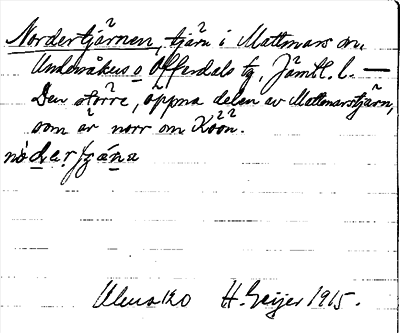 Nordertjärnen, tjärn i Mattmars sn.
Undersåkers o Offerdals tg, Jämtl. l. —
Den större, öppna delen av Mattmarstjärn,
som är norr om Köön.
H. Geijer 1915.